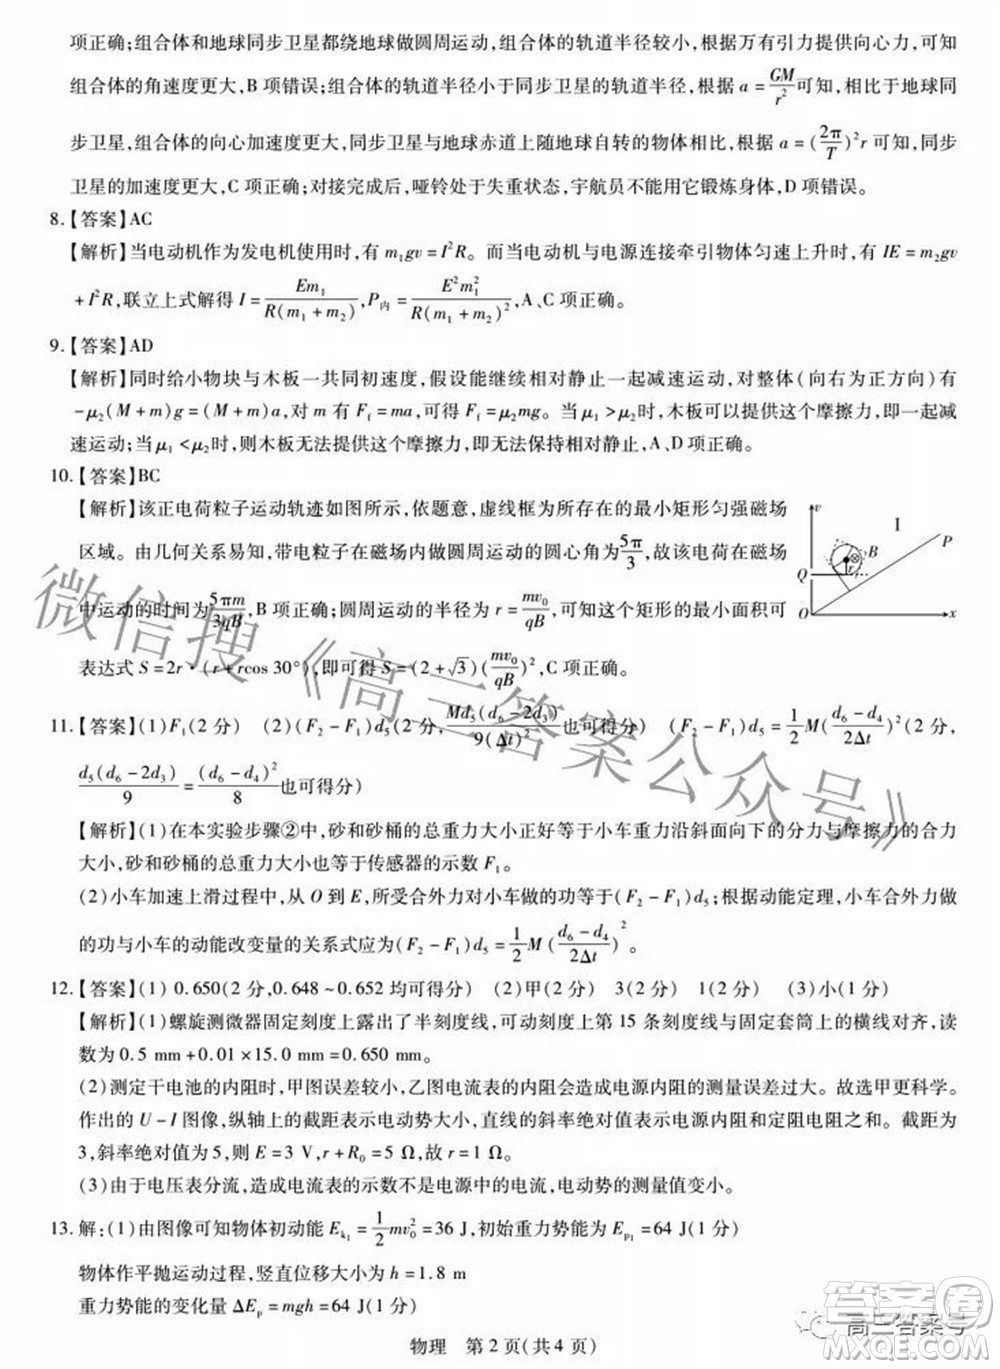 项正确;组合体和地球同步卫星都绕地球做圆周运动,组合体的轨道半径较小,根据万有引力提供向心力,可知
组合体的角速度更大,B 项错误;组合体的轨道半径小于同步卫星的轨道半径,根据 a = GM/r² 可知,相比于地球同
步卫星,组合体的向心加速度更大;同步卫星与地球赤道上随地球自转的物体相比,根据 a = (2π/T)²r 可知,同步
卫星的加速度更大,C 项正确;对接完成后,哑铃处于失重状态,宇航员不能用它锻炼身体,D 项错误。
8.【答案】AC
【解析】当电动机作为发电机使用时,有 m₁gv = I²R。而当电动机与电源连接牵引物体匀速上升时,有 IE = m₂gv
+ I²R,联立上式解得 I = Em₁/R(m₁ + m₂),P内 = E²m₁²/R(m₁ + m₂)²,A、C 项正确。
9.【答案】AD
【解析】同时给小物块与木板一共同初速度,假设能继续相对静止一起减速运动,对整体(向右为正方向)有
-μ₂(M + m)g = (M + m)a,对 m 有 Ff = ma,可得 Ff = μ₂mg。当 μ₁ > μ₂ 时,木板可以提供这个摩擦力,即一起减
速运动;当 μ₁ < μ₂ 时,则木板无法提供这个摩擦力,即无法保持相对静止,A、D 项正确。
10.【答案】BC
【解析】该正电荷粒子运动轨迹如图所示,依题意,虚线框内为最小矩形匀强磁场
区域。由几何关系易知,带电粒子在磁场内做圆周运动的圆心角为 5π/3,故该电荷在磁场
中运动的时间为 5πm/3qB,B 项正确;圆周运动的半径为 r = mv₀/qB,可知这个矩形的最小面积可
表达式 S = 2r·(r + rcos 30°),即可得 S = (2 + √3)(mv₀/qB)²,C 项正确。
y
I
P
B
Q
r
O
x
11.【答案】(1)F₁(2 分) (2)(F₂ - F₁)d₅(2 分, Md₅(d₆ - 2d₃)/9(Δt)² 也可得分) (F₂ - F₁)d₅ = 1/2 M((d₆ - d₄)/2Δt)²(2 分,
d₅(d₆ - 2d₃)/9 = (d₆ - d₄)²/8 也可得分)
【解析】(1)在本实验步骤②中,砂和砂桶的总重力大小正好等于小车重力沿斜面向下的分力与摩擦力的合力
大小,砂和砂桶的总重力大小也等于传感器的示数 F₁。
(2)小车加速上滑过程中,从 O 到 E,所受合外力对小车做的功等于(F₂ - F₁)d₅;根据动能定理,小车合外力做
的功与小车的动能改变量的关系式应为(F₂ - F₁)d₅ = 1/2 M((d₆ - d₄)/2Δt)²。
12.【答案】(1) 0.650(2 分,0.648 ~ 0.652 均可得分) (2)甲(2 分) 3(2 分) 1(2 分) (3)小(1 分)
【解析】(1)螺旋测微器固定刻度上露出了半刻度线,可动刻度上第 15 条刻度线与固定套筒上的横线对齐,读
数为 0.5 mm + 0.01 × 15.0 mm = 0.650 mm。
(2)测定干电池的内阻时,甲图误差较小,乙图电流表的内阻会造成电源内阻的测量误差过大。故选甲更科学。
作出的 U - I 图像,纵轴上的截距表示电动势大小,直线的斜率绝对值表示电源内阻和定值电阻之和。截距为
3,斜率绝对值为 5,则 E = 3 V,r + R₀ = 5 Ω,故 r = 1 Ω。
(3)由于电压表分流,造成电流表的示数不是电源中的电流,电动势的测量值变小。
13.解:(1)由图像可知物体初动能 Ek₁ = 1/2 mv₀² = 36 J,初始重力势能为 Ep₁ = 64 J(1 分)
物体作平抛运动过程,竖直位移大小为 h = 1.8 m
重力势能的变化量 ΔEp = mgh = 64 J(1 分)
物理 第 2 页(共 4 页)
微信搜《高三答案公众号》
高三答案号
答案圈
MXQE.COM